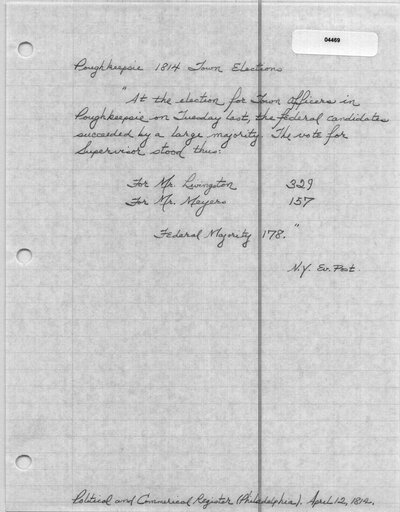 04469
Poughkeepsie 1814 Town Elections
"At the election for Town Officers in
Poughkeepsie on Tuesday last, the federal candidates
succeeded by a large majority. The vote for
Supervisor stood thus:
For Mr. Livingston 329
For Mr. Meyers 157
Federal Majority 178."
N.Y. Ev. Post
Political and Commerical Register (Philadelphia). April 12, 1814.